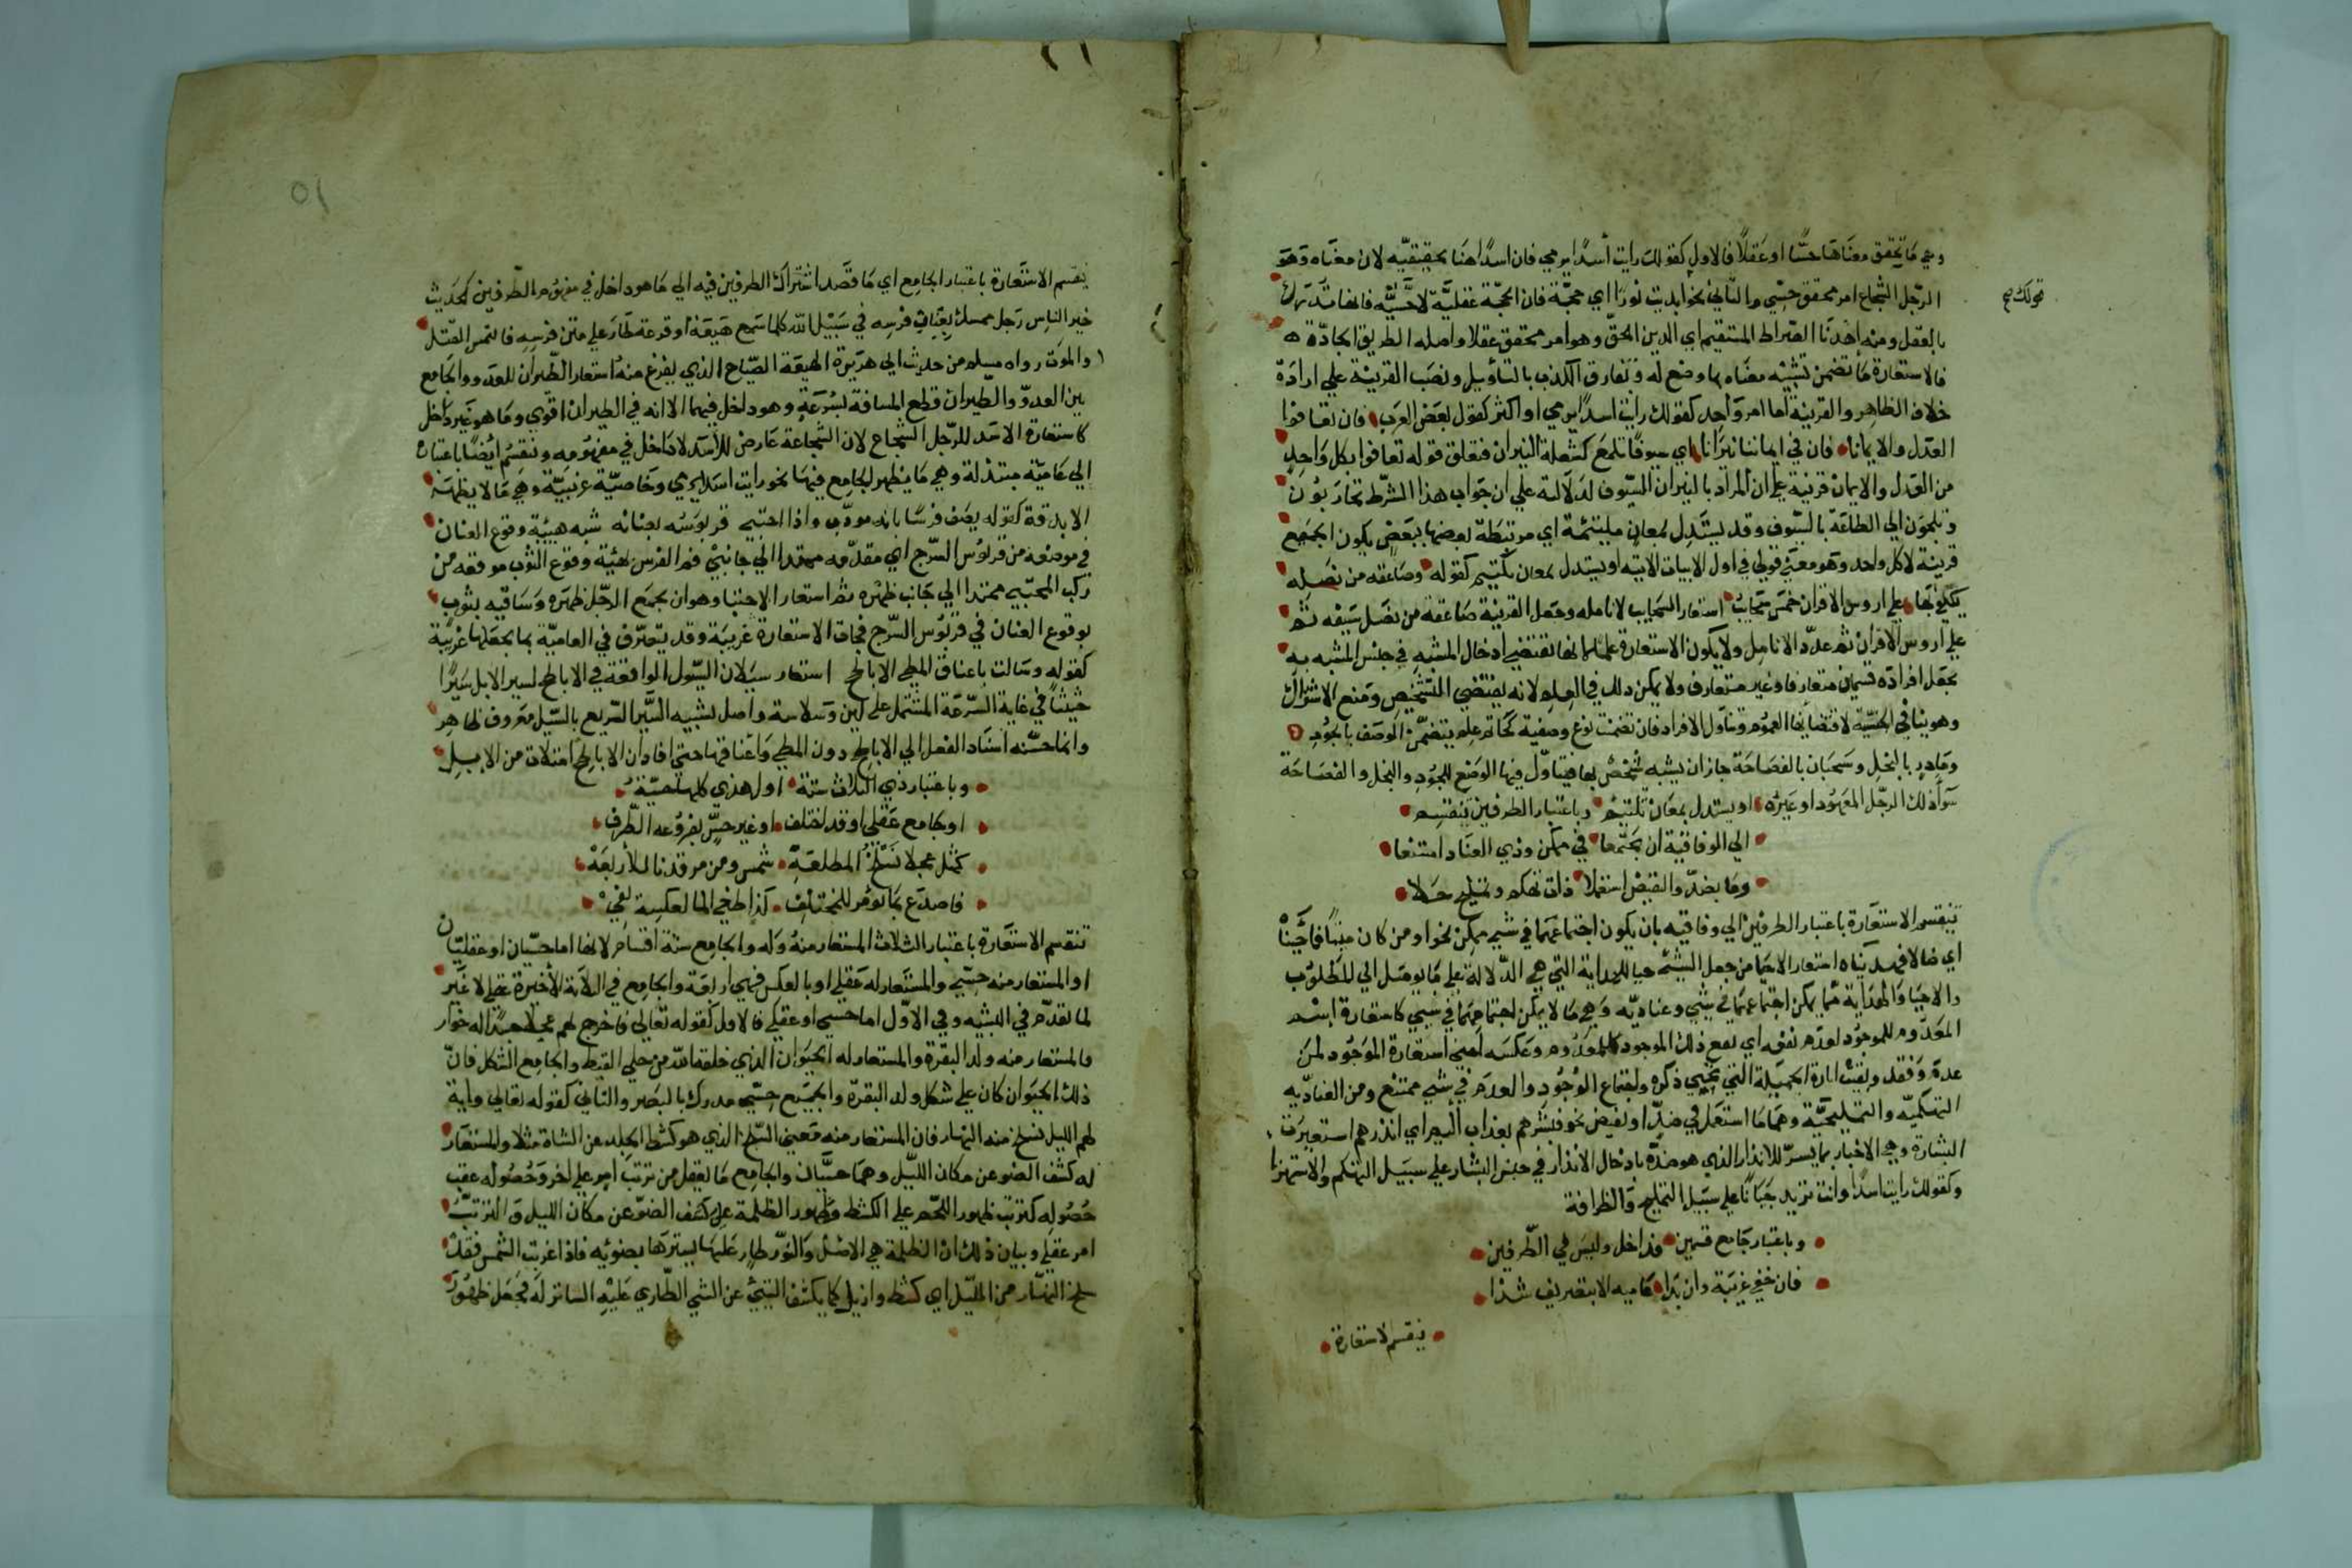 وهي ما تحقق معناها حسّا او عقلاً فالاول كقولك رايت أسدًا يرمي فان اسدًا هنا تحقيقيّه لان معناه وهو
الرّجل الشجاع امر محقق حسّي والثاني نحو ابديت نورًا اي حجّة فان الحجّة عقليَّة لا حسّيّه فانها تدرك
نحولك صح
بالعقل ومنه أهدنا الصّراط المستقيم اي الدين الحقّ وهو امر محقق عقلا واصله الطريق الجادّة ه
فالاستعارة ما تضمن تشبيه معناه بما وضع له وتفارق الكذب بالتأويل ونصب القرينة علي ارادة
خلاف الظاهر والقرينة اما امر واحد كقولك رايت اسدًا يرمي او اكثر كقول بعض العرب فان تعافوا
العدل والايمانا فان في ايماننا نيرانا اي سيوفًا تلمع كشعلة النيران فتعلق قوله تعافوا بكل واحدٍ
من العدل والايمان قرينة علي ان المراد بالنيران السّيوف لدلالته علي ان جواب هذا الشرط تحاربون
وتلجون الي الطاعة بالسّيوف وقد يستدل لمعان ملتئمة اي مرتبطة بعضها ببعض يكون الجميع
قرينة لا كل واحد وهو معني قولي في اول الابيات الاتيه او يستدل بمعان تلتيم كقوله وصاعقه من نصله
ينكفي بها علي اروس الاقران خمس سحايبُ استعار السحايب لانامله وجعل القرينة صاعقة من نصل سيفه ثم
علي اروس الاقران ثم عدّد الانامل ولا يكون الاستعارة علما لانها تقتضي ادخال المشبه في جنس المشبه به
بجعل افراده قسمين متعارفا وغير متعارف ولا يمكن ذلك في العلم لانه يقتضي التشخيص ومنع الاشتراك
وهو ينافي الجنسيّة لاقتضايها العموم وتناول الافراد فان تضمنت نوع وصفية كحاتم علم يتضمّن الوصف بالجودِ
ومادرٍ بالبخل وسحبان بالفصاحة جاز ان يشبه شخصٌ بها فيتناول فيها الوضع للجودِ والبخل والفصاحة
سوآء ذلك الرجّل المعهود او غيره او يستدل بمعان تلتيم وباعتبار الطرفين ينقسم
الي الوفاقية ان يجتمعا في ممكن وذي العناد امتنعا
وما بضدّ والنقيض استعملا ذات تهكم وتمليح جلا
تنقسم الاستعارة باعتبار الطرفين الي وفاقيه بان يكون اجتماعهما في شيء ممكن نحو او من كان ميتًا فاحييناه
اي ضالا فهديناه استعار الاحيا من جعل الشيء حيا للهداية التي هي الدّلالة علي ما يوصل الي المطلوب
والاحيا والهداية مما يمكن اجتماعهما في شيء وعناديّه وهي ما لا يمكن اجتماعهما في شيء كاستعارة اسم
المعدوم للموجود لعدم نفعه اي نفع ذلك الموجود كالمعدوم وعكسه اعني استعارة الموجود لمن
عدم وفقد وبقيت اثارة الجميلة التي تحيي ذكره واجتماع الوجود والعدم في شيء ممتنع ومن العناديّه
التهكميّه والتمليحيّة وهما ما استعمل في ضدٍ او نقيض نحو فبشرهم بعذاب اليم اي انذرهم استعيرت
البشارة وهي الاخبار بما يسرّ للانذار الذي هو ضدّه بادخال الانذار في جنس البشارة علي سبيل التهكم والاستهزا
وكقولك رايت اسدًا وانت تريد جبانًا علي سبيل التمليح والظرافة
وباعتبار جامع قسمين فداخل وليس في الطّرفين
فان خفي غريبة وان بدا عاميه الا بتصريف شدا
ينقسم الاستعارة
٥١
ينقسم الاستعارة باعتبار الجامع اي ما قصد اشتراك الطرفين فيه الي ما هو داخل في مفهوم الطّرفين كحديث
خير الناس رجل ممسك بعنان فرسه في سبيل الله كلما سمع هيعة او قزعة طار علي متن فرسه فالتمس القتل
والموت رواه مسلم من حديث ابي هريرة الهيعة الصّياح الذي يفزع منه استعار الطّيران للعدو والجامع
بين العدوّ والطّيران قطع المسافة بسرعةٍ وهو داخل فيهما الا انه في الطيران اقوي وما هو غير داخل
كاستعارة الاسد للرّجل الشجاع لان الشجاعة عارض للأسد لا داخل في مفهومه وتنقسم ايضًا باعتباره
الي عاميّة مبتذلة وهي ما يظهر الجامع فيها نحو رايت اسدا يرمي وخاصيّة غريبيّة وهي ما لا يظهر
الا بدقة كقوله يصف فرسًا بانه مودّب واذا احتبي قربوسُه بعنانه شبه هيئة وقوع العنان
في موضعه من قربوس السّرج اي مقدّمه ممتدا الي جانبي فم الفرس بهيئة وقوع الثوب موقعه من
ركب المحتبيه ممتدا الي جانب ظهره ثم استعار الاحتبا وهو ان يجمع الرجّل ظهره وساقيه بثوبٍ
لوقوع العنان في قربوس السّرج فجات الاستعارة غريبة وقد يتصرّف في العاميّة بما يجعلها غريبة
كقوله وسالت باعناق المطي الاباطح استعار سيلان السّيول الواقعة في الاباطح لسير الابل سَيْرًا
حثيثًا في غاية السّرعة المشتمل علي لين وسلاسة واصل تشبيه السّير السّريع بالسّيل معروف ظاهر
وانما حسّنه اسناد الفعل الي الاباطح دون المطي واعناقها حتي افاد ان الاباطح امتلات من الابل
وباعتبار ذي الثلاث ستة اول هذي كلها حسيّة
او جامع عقلي او قد اختلف او غير حسّي بفروعه الطّرف
كمثل عجلا نسلخُ المطلعة شمس ومن مرقدنا للأربعة
فاصدع بما تؤمر للمختلف كذا طغي الما لعكسه يفي
تنقسم الاستعارة باعتبار الثلاث المستعار منه وله والجامع ستة اقسام لانها اما حسّيان او عقليّان
او المستعار منه حسّي والمستعار له عقلي او بالعكس فهي اربعة والجامع في الثلاثة الاخيرة عقلي لا غير
لما تقدّم في التشبيه وفي الاوّل اما حسي او عقلي فالاول كقوله تعالي فاخرج لهم عجلا جسدًا له خوار
فالمستعار منه ولد البقرة والمستعار له الحيوان الذي خلقه الله من حلي القبط والجامع الشكل فانّ
ذلك الحيوان كان علي شكل ولد البقرة والجميع حسّي مدرك بالبصر والثاني كقوله تعالي واية
لهم الليل نسلخ منه النهار فان المستعار منه معني السّلخ الذي هو كشط الجلد عن الشاة مثلا والمستعار
له كشف الضو عن مكان اللّيل وهما حسّيان والجامع ما يعقل من ترتب امرٍ علي اخر وحصوله عقب
حصوله كترتب ظهور اللّحم علي الكشط وظهور الظلمة علي كشف الضوّ عن مكان الليل والترتبُ
امر عقلي وبيان ذلك ان الظلمة هي الاصل والنّور طارٍ عليها يسترها بضوئه فاذا غربت الشمس فقد
سلخ النهار من اللّيل اي كشط وازيل كما يكشف الشيء عن الشي الطّاري عليه الساتر له فجعل ظهور